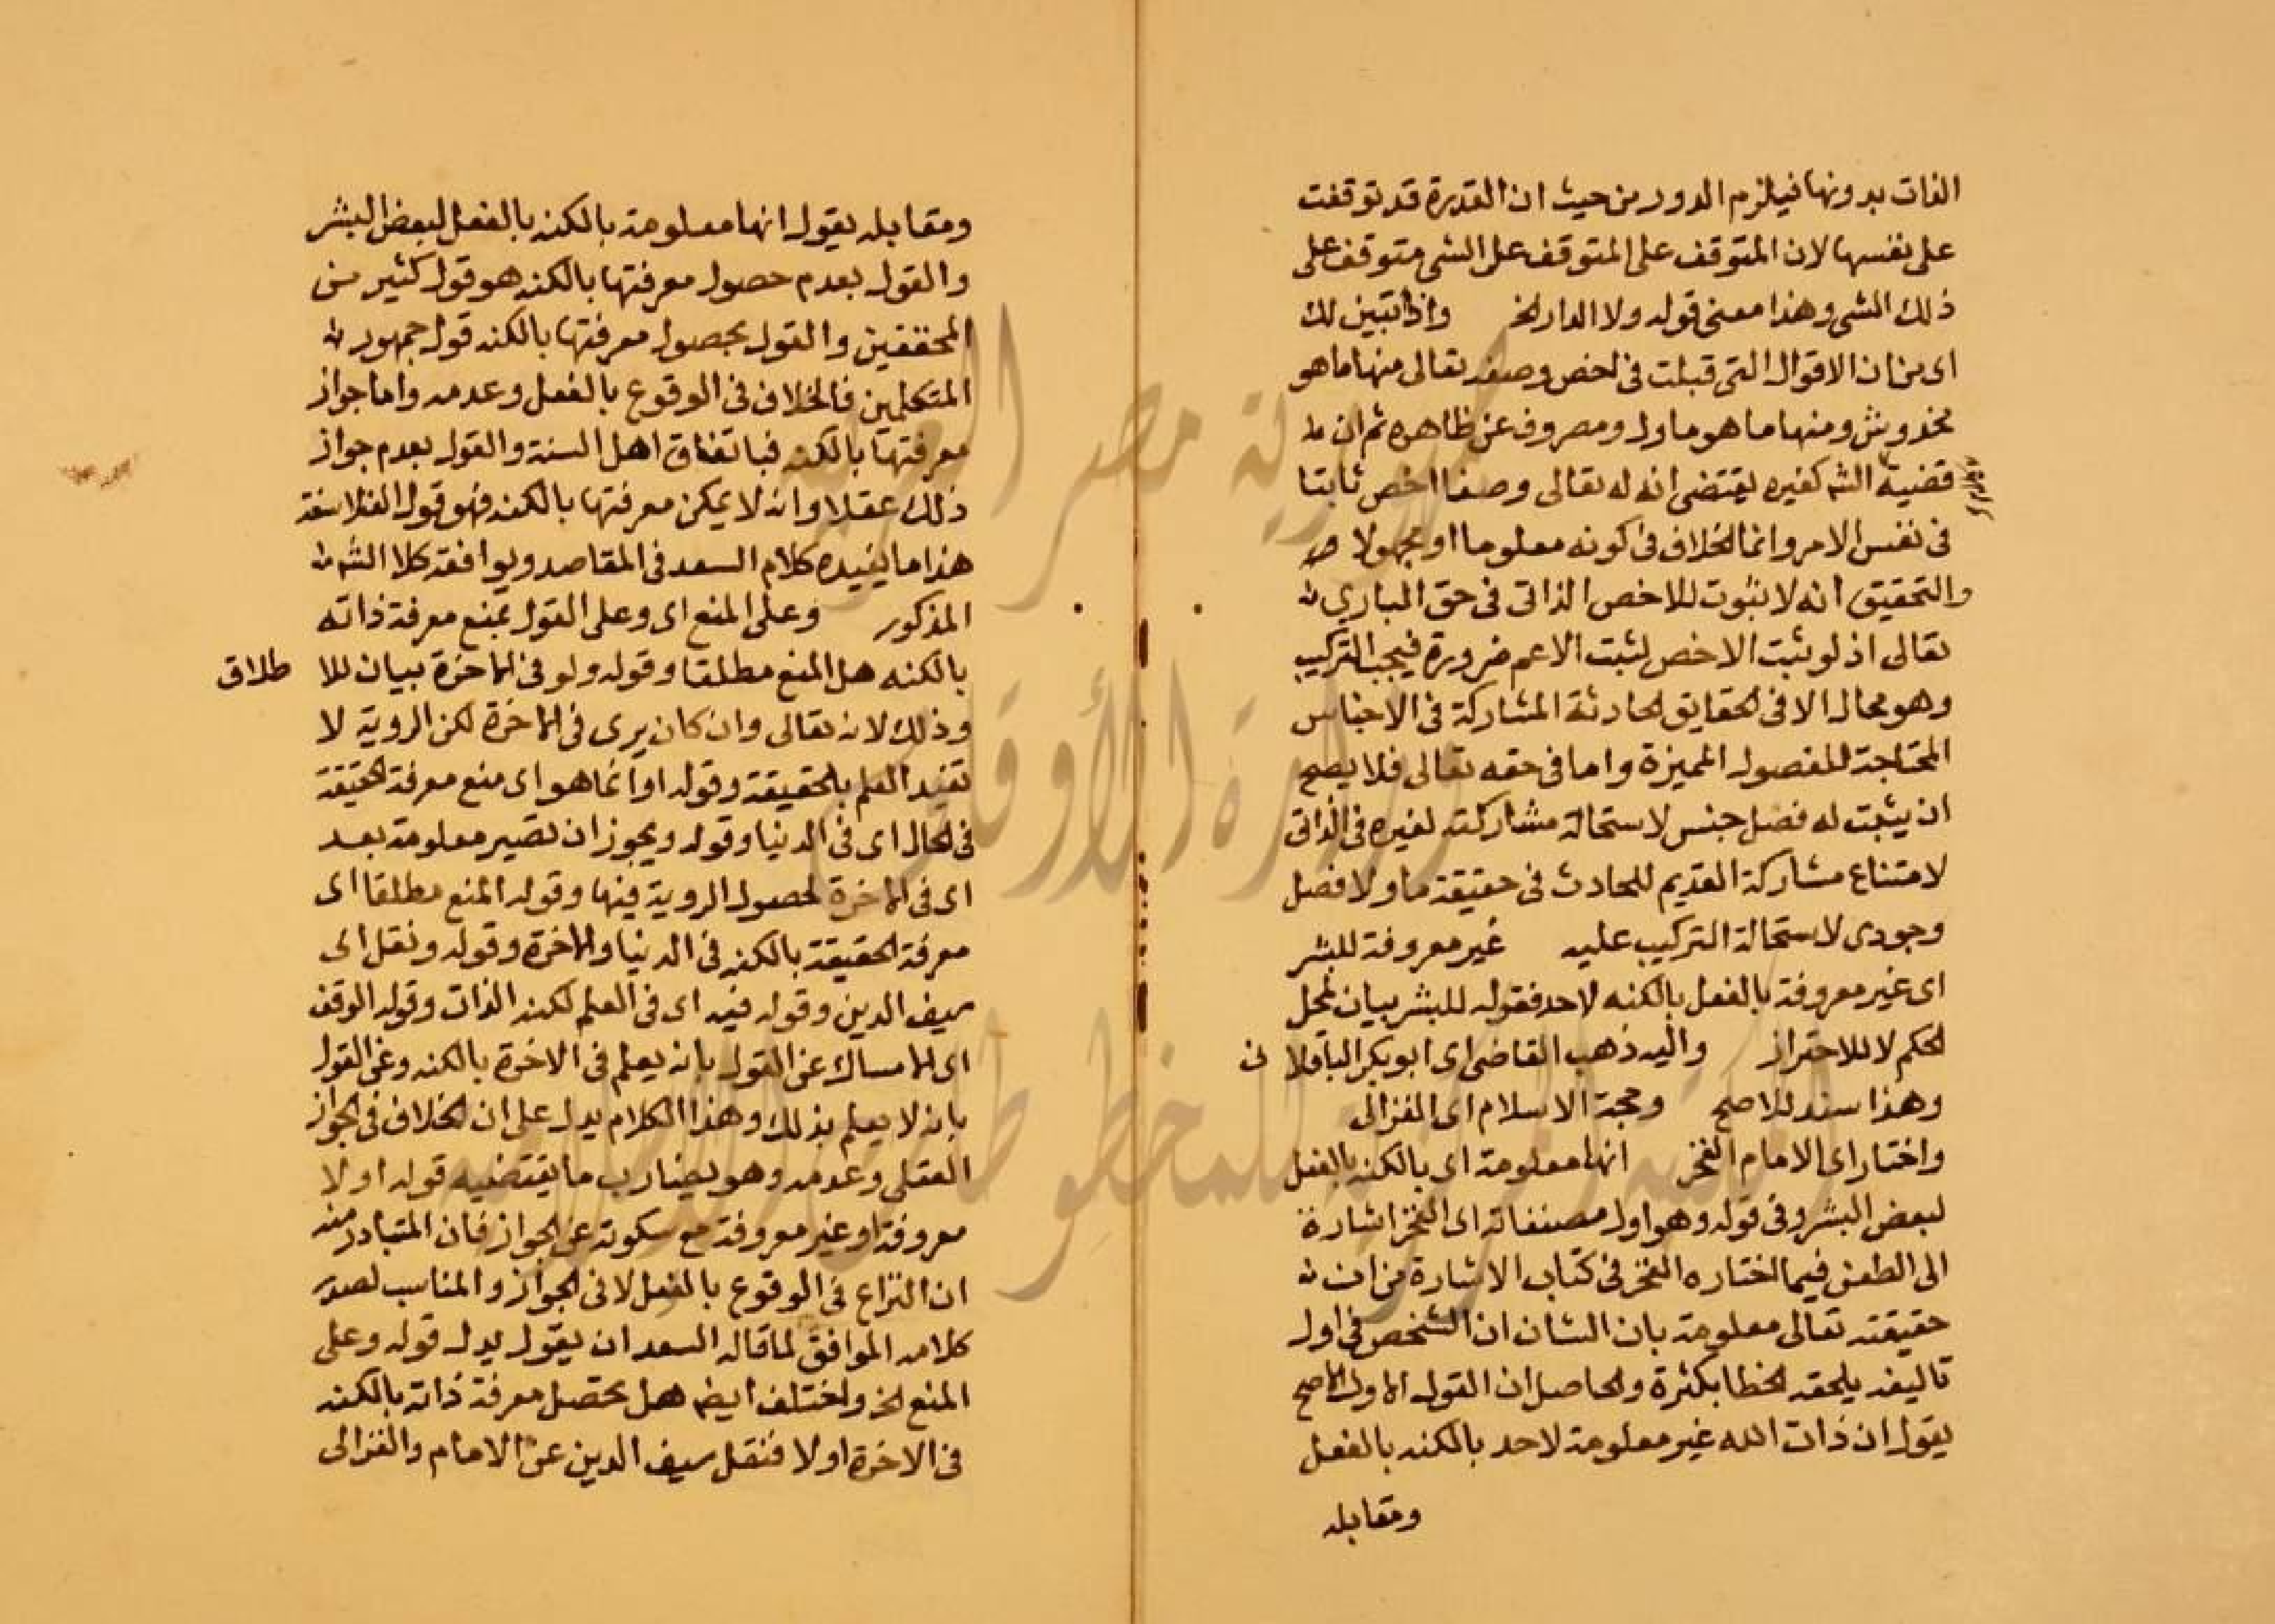 الذات بدونها فيلزم الدور من حيث ان القدرة قد توقفت
على نفسها لان المتوقف على المتوقف على الشى متوقف على
ذلك الشى وهذا معنى قوله ولا الدار الخ واذا تبين لك
اى من ان الاقوال التى قيلت فى اخص وصفه تعالى منها ما هو
مخدوش ومنها ما هو ماول ومصروف عن ظاهره ثم ان
قضية الشه كغيره يقتضى انه له تعالى وصفا اخص ثابتا
فى نفس الامر وانما الخلاف فى كونه معلوما او مجهولا
والتحقيق انه لا ثبوت للاخص الذاتى فى حق البارى
تعالى اذ لو ثبت الاخص لثبت الاعم ضرورة فيجب التركيب
وهو محال الا فى الحقايق الحادثة المشاركة فى الاجناس
المحتاجة للفصول المميزة واما فى حقه تعالى فلا يصح
ان يثبت له فصل جنس لاستحالة مشاركته لغيره فى الذاتى
لامتناع مشاركة القديم للحادث فى حقيقة ما ولا فصل
وجودى لاستحالة التركيب عليه غير معروفة للبشر
اى غير معروفة بالفعل بالكنه لاحد فقوله للبشر بيان لمحل
الحكم لا للاحتراز واليه ذهب القاضى اى ابو بكر الباقلا نى
وهذا سند للاصح وحجة الاسلام اى الغزالى
واختار اى الامام الفخر انها معلومة اى بالكنه بالفعل
لبعض البشر وفى قوله وهو اول مصنفاته اى الفخر اشارة
الى الطعن فيما اختاره الفخر فى كتاب الاشارة من ان
حقيقته تعالى معلومة بان الشان ان الشخص فى اول
تاليفه يلحقه الخطا بكثرة والحاصل ان القول الاول الاصح
يقول ان ذات الله غير معلومة لاحد بالكنه بالفعل
ومقابله
ومقابله يقول انها معلومة بالكنه بالفعل لبعض البشر
والقول بعدم حصول معرفتها بالكنه هو قول كثير من
المحققين والقول بحصول معرفتها بالكنه قول جمهور
المتكلمين فالخلاف فى الوقوع بالفعل وعدمه واما جواز
معرفتها بالكنه فباتفاق اهل السنة والقول بعدم جواز
ذلك عقلا وانه لا يمكن معرفتها بالكنه فهو قول الفلاسفة
هذا ما يفيده كلام السعد فى المقاصد ويوافقه كلا الشه
المذكور وعلى المنع اى وعلى القول بمنع معرفة ذاته
بالكنه هل المنع مطلقا وقوله ولو فى الاخرة بيان للا طلاق
وذلك لانه تعالى وان كان يرى فى الاخرة لكن الروية لا
تفيد العلم بالحقيقة وقوله او انما هو اى منع معرفة الحقيقة
فى الحال اى فى الدنيا وقوله ويجوز ان تصير معلومة بعد
اى فى الاخرة لحصول الروية فيها وقوله المنع مطلقا اى
معرفة الحقيقة بالكنه فى الدنيا والاخرة وقوله ونقل اى
سيف الدين وقوله فيه اى فى العلم لكنه الذات وقوله الوقف
اى الامساك عن القول بانه يعلم فى الاخرة بالكنه وعن القول
بانه لا يعلم بذلك وهذا الكلام يدل على ان الخلاف فى الجواز
العقلى وعدمه وهو يضارب ما يقتضيه قوله اولا
معروفة او غير معروفة مع سكوته عن الجواز فان المتبادر منه
ان النزاع فى الوقوع بالفعل لا فى الجواز والمناسب لصدر
كلامه الموافق لما قاله السعد ان يقول بدل قوله وعلى
المنع الخ واختلف ايضا هل يحصل معرفة ذاته بالكنه
فى الاخرة اولا فنقل سيف الدين عن الامام والغزالى
جمهورية مصر العربية
وزارة الأوقاف
المكتبة المركزية للمخطوطات الإسلامية